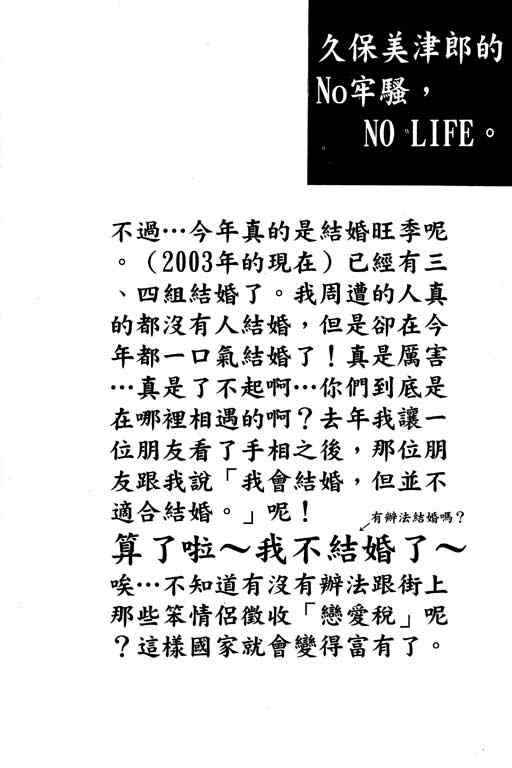 久保美津郎的
No牢騷，
NO LIFE。
不過…今年真的是結婚旺季呢
。（2003年的現在）已經有三
、四組結婚了。我周遭的人真
的都沒有人結婚，但是卻在今
年都一口氣結婚了！真是厲害
…真是了不起啊…你們到底是
在哪裡相遇的啊？去年我讓一
位朋友看了手相之後，那位朋
友跟我說「我會結婚，但並不
適合結婚。」呢！
有辦法結婚嗎？
算了啦～我不結婚了～
唉…不知道有沒有辦法跟街上
那些笨情侶徵收「戀愛稅」呢
？這樣國家就會變得富有了。